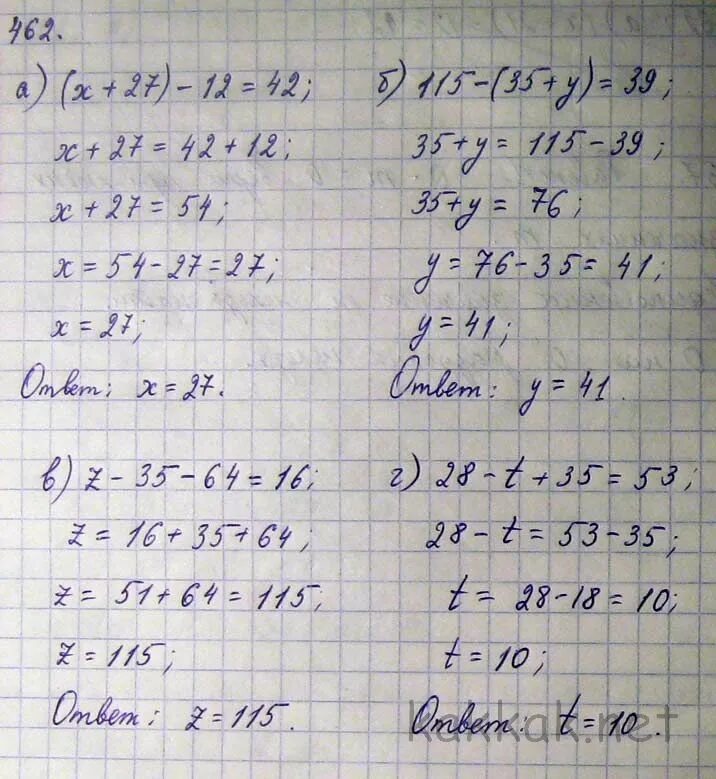 462.
а) (x + 27) - 12 = 42;
x + 27 = 42 + 12;
x + 27 = 54;
x = 54 - 27 = 27;
x = 27;
Ответ: x = 27.
б) 115 - (35 + y) = 39;
35 + y = 115 - 39;
35 + y = 76;
y = 76 - 35 = 41;
y = 41;
Ответ: y = 41.
в) z - 35 - 64 = 16;
z = 16 + 35 + 64;
z = 51 + 64 = 115;
z = 115;
Ответ: z = 115.
г) 28 - t + 35 = 53;
28 - t = 53 - 35;
t = 28 - 18 = 10;
t = 10;
Ответ: t = 10.
kakkak.net